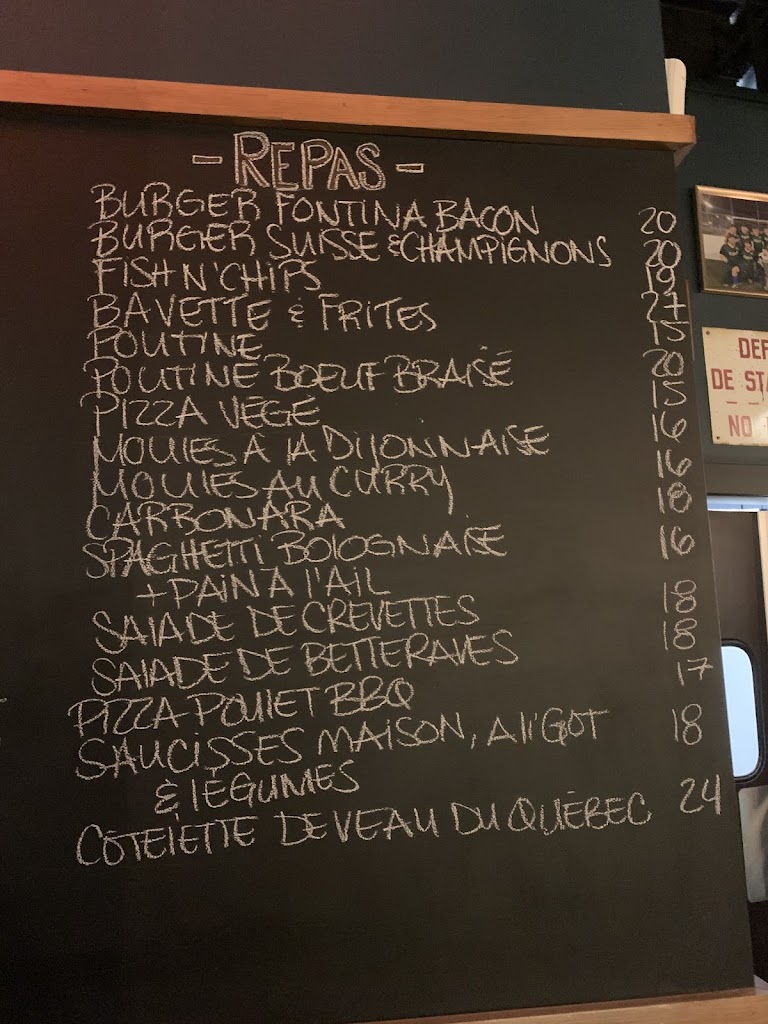 - REPAS -
BURGER FONTINA BACON 20
BURGER SUISSE & CHAMPIGNONS 20
FISH N' CHIPS 19
BAVETTE & FRITES 27
POUTINE 15
POUTINE BOEUF BRAISÉ 20
PIZZA VÉGÉ 15
MOULES À LA DIJONNAISE 16
MOULES AU CURRY 16
CARBONARA 18
SPAGHETTI BOLOGNAISE 16
+ PAIN À L'AIL
SALADE DE CREVETTES 18
SALADE DE BETTERAVES 18
PIZZA POULET BBQ 17
SAUCISSES MAISON, ALIGOT 18
& LÉGUMES
CÔTELETTE DE VEAU DU QUÉBEC 24
DEF
DE STA
NO